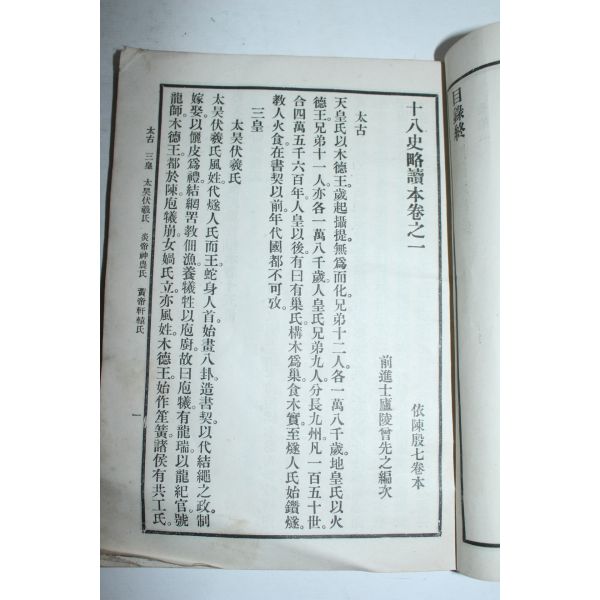 目錄終
十八史略讀本卷之一
依陳殷七卷本
前進士廬陵曾先之編次
太古
天皇氏以木德王。歲起攝提。無爲而化。兄弟十二人。各一萬八千歲。地皇氏以火
德王。兄弟十一人。亦各一萬八千歲。人皇氏兄弟九人。分長九州。凡一百五十世。
合四萬五千六百年。人皇以後。有曰有巢氏。構木爲巢。食木實。至燧人氏。始鑽燧。
教人火食。在書契以前。年代國都不可攷。
三皇
太昊伏羲氏
太昊伏羲氏。風姓。代燧人氏而王。蛇身人首。始畫八卦。造書契。以代結繩之政。制
嫁娶。以儷皮爲禮。結網罟。教佃漁。養犧牲。以庖廚。故曰庖犧。有龍瑞。以龍紀官。號
龍師。木德王。都於陳。庖犧崩。女媧氏立。亦風姓。木德王。始作笙簧。諸侯有共工氏。
太古 三皇 太昊伏羲氏 炎帝神農氏 黃帝軒轅氏
一